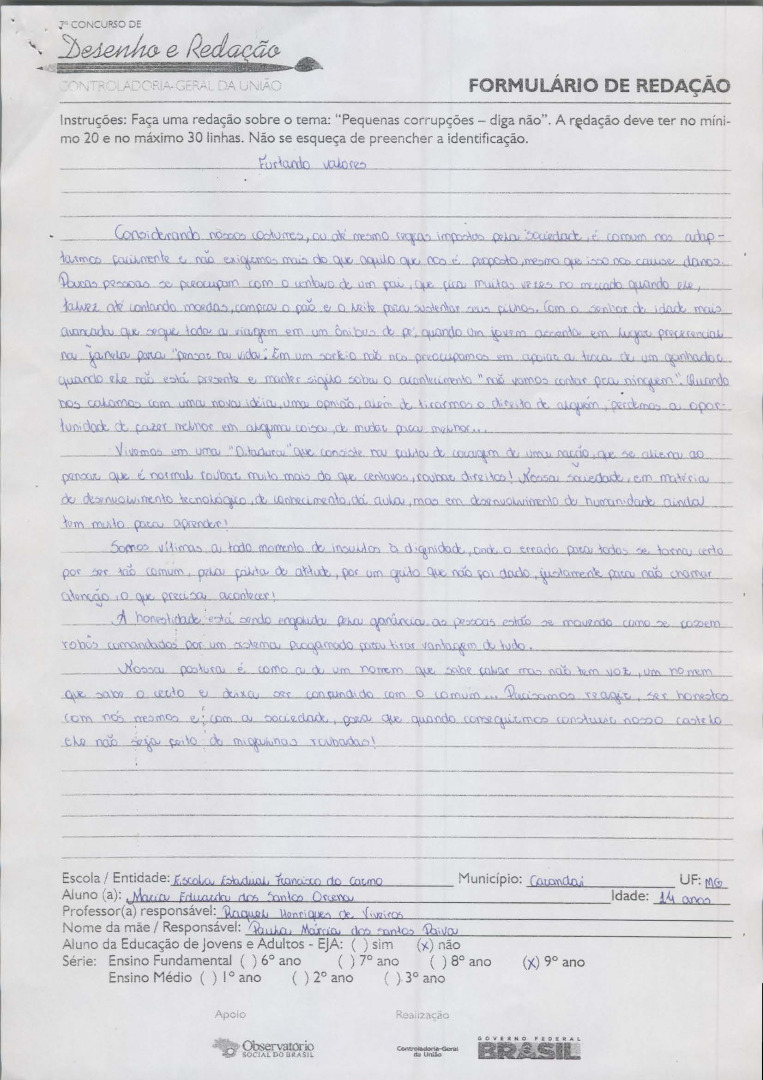 7º CONCURSO DE
Desenho e Redação
CONTROLADORIA-GERAL DA UNIÃO
FORMULÁRIO DE REDAÇÃO
Instruções: Faça uma redação sobre o tema: "Pequenas corrupções – diga não". A redação deve ter no míni-
mo 20 e no máximo 30 linhas. Não se esqueça de preencher a identificação.
Furtando valores
Considerando nossos costumes, ou até mesmo regras impostas pela sociedade, é comum nos adap-
tarmos facilmente e não exigirmos mais do que aquilo que nos é proposto, mesmo que isso nos cause danos.
Poucas pessoas se preocupam com o centavo de um pai, que fica muitas vezes no mercado quando ele,
talvez até contando moedas, compra o pão e o leite para sustentar seus filhos. Com o senhor de idade mais
avançada que segue toda a viagem em um ônibus de pé, quando um jovem assenta em lugar preferencial
na janela para "pensar na vida". Em um sorteio não nos preocupamos em apoiar a troca de um ganhador
quando ele não está presente e manter sigilo sobre o acontecimento "não vamos contar pra ninguém". Quando
nos calamos com uma nova idéia, uma opnião, além de tirarmos o direito de alguém, perdemos a opor-
tunidade de fazer melhor em alguma coisa, de mudar para melhor...
Vivemos em uma "Ditadura" que consiste na falta de coragem de uma nação, que se aliena ao
pensar que é normal roubar muito mais do que centavos, roubar direitos! Nossa sociedade, em matéria
de desenvolvimento tecnológico, de conhecimento, dá aula, mas em desenvolvimento de humanidade ainda
tem muito para aprender!
Somos vítimas a todo momento de insultos à dignidade, onde o errado para todos se torna certo
por ser tão comum, pela falta de atitude, por um grito que não foi dado, justamente para não chamar
atenção, o que precisa acontecer!
A honestidade está sendo engolida pela ganância, as pessoas estão se movendo como se fossem
robôs comandados por um sistema progamado para tirar vantagem de tudo.
Nossa postura é como a de um homem que sabe falar mas não tem voz, um homem
que sabe o certo e deixa ser confundido com o comum... Precisamos reagir, ser honestos
com nós mesmos e com a sociedade, para que quando conseguirmos construir nosso castelo
ele não seja feito de migalhas roubadas!
Escola / Entidade: Escola Estadual Francisco do Carmo Município: Carandaí UF: MG
Aluno (a): Maria Eduarda dos Santos Idade: 14 anos
Professor(a) responsável: Raquel Henriques de Viveiros
Nome da mãe / Responsável: Paula Márcia dos Santos Paiva
Aluno da Educação de Jovens e Adultos - EJA: ( ) sim (x) não
Série: Ensino Fundamental ( ) 6º ano ( ) 7º ano ( ) 8º ano (x) 9º ano
Ensino Médio ( ) 1º ano ( ) 2º ano ( ) 3º ano
Apoio Realização
Observatório
SOCIAL DO BRASIL
Controladoria-Geral
da União
GOVERNO FEDERAL
BRASIL